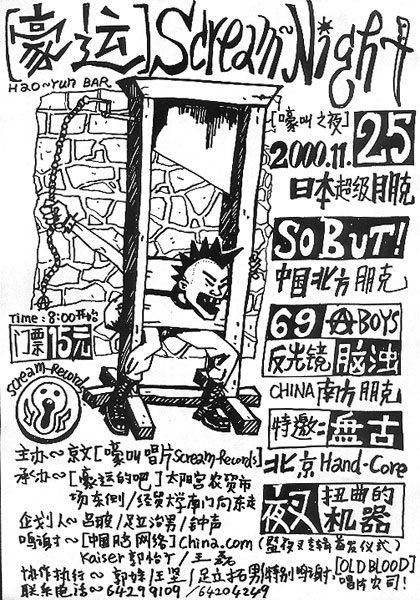 [豪运] Scream~Night
Hao~run BAR
[嚎叫之夜]
2000.11.25
日本超级朋克
SOBUT!
中国北方朋克
69 BOYS
Time:8:00开始
门票15元
反光镜 脑浊
Scream-Record
CHINA 南方朋克
特邀: 盘古
主办~京文[嚎叫唱片Scream-Records]
北京Hand-Core
承办~[豪运的吧]太阳宫农贸市
场东侧/经贸大学南门向东走
夜叉 扭曲的机器
企划人~吕玻/足立治男/钟声
鸣谢~[中国网络]China.com(首发仪式)
Kaiser郭怡/王磊
[OLD BLOOD]
协作执行~郭/王坚/足立拓男 特别鸣谢:唱片公司!
联系电话~64298109/64204249